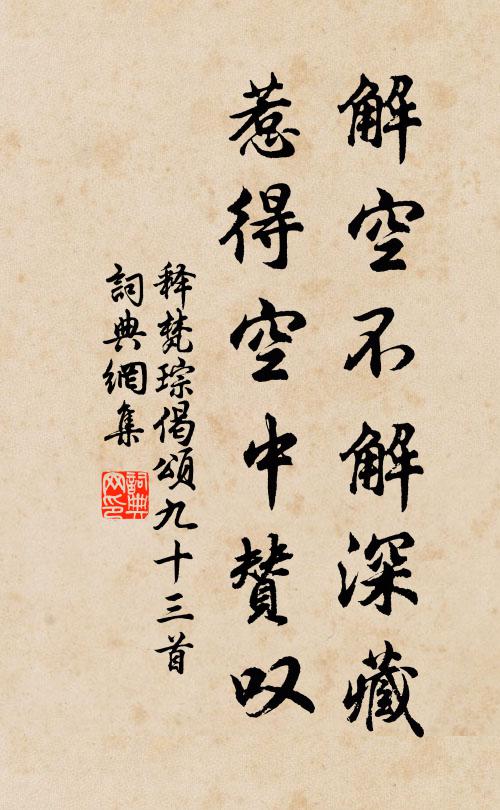 解空不解深藏
惹得空中赞叹
释梵琮偈頌九十三首
詞典網集
詞典網印